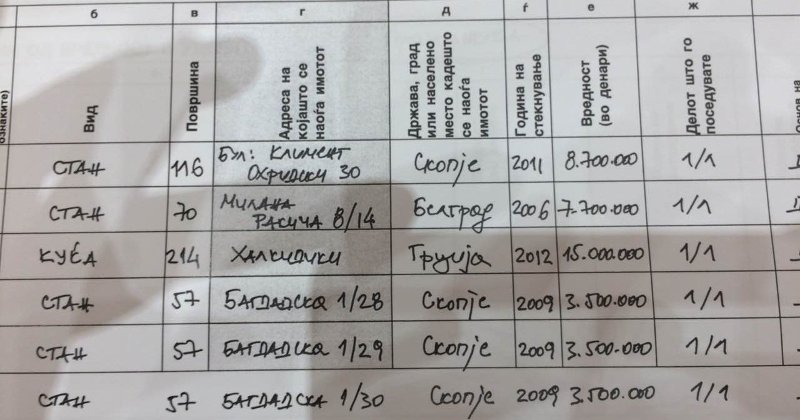 б в г д ѓ е ж
ознаките)
Вид
Површина
Адреса на
којашто се
наоѓа имотот
Држава, град
или населено
место кадешто
се наоѓа
имотот
Година на
стекнување
Вредност
(во денари)
Делот што го
поседувате
Основ на
СТАН 116 Бул: Климент Охридски 30 Скопје 2011 8.700.000 1/1
СТАН 70 Милана Расича 8/14 Белград 2006 7.700.000 1/1
КУЌА 214 Халкидики Грција 2012 15.000.000 1/1
СТАН 57 БАГДАДСКА 1/28 Скопје 2009 3.500.000 1/1
СТАН 57 БАГДАДСКА 1/29 Скопје 2009 3.500.000 1/1
СТАН 57 БАГДАДСКА 1/30 Скопје 2009 3.500.000 1/1